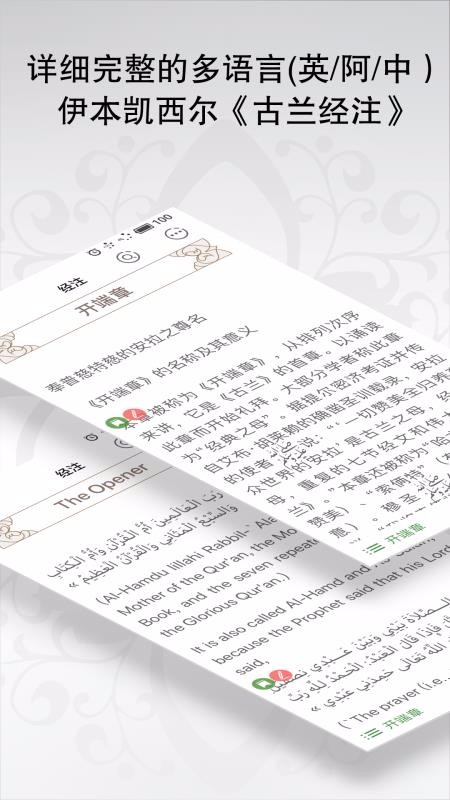 详细完整的多语言(英/阿/中)
伊本凯西尔《古兰经注》
100
经注
开端章
奉普慈特慈的安拉之尊名
《开端章》的名称及其意义
本章被称为《开端章》，从排列次序
来讲，它是《古兰》的首章。以诵读
此章而开始礼拜。大部分学者称此章
为“经典之母”。据提尔密济考证并传
自艾布·胡莱赖的确凿圣训载录，安拉
的使者说：“‘一切赞美全归养
众世界的安拉，是古兰之母，经
母，重复的七节经文和伟大
兰》。本章还被称为“哈
赞美）、“索俩特”（
意）。穆圣
开端章
经注
The Opener
رَبِّ الْعَالَمِينَ أُمُّ الْقُرْآنِ وَأُمُّ الْكِتَابِ
وَالسَّبْعُ الْمَثَانِي وَالْقُرْآنُ الْعَظِيمُ»
(Al-Hamdu lillahi Rabbil-`Ala
Mother of the Qur'an, the Mo
Book, and the seven repeate
the Glorious Qur'an.)
It is also called Al-Hamd and
because the Prophet said that his Lord
said,
الصَّلَاةَ بَيْنِي وَبَيْنَ عَبْدِي نِصْفَيْنِ
فَإِذَا قَالَ الْعَبْدُ: الْحَمْدُ للهِ رَبِّ
قَالَ اللهُ تَعَالَى حَمِدَنِي عَبْدِي»
(`The prayer (i.e.,
开端章